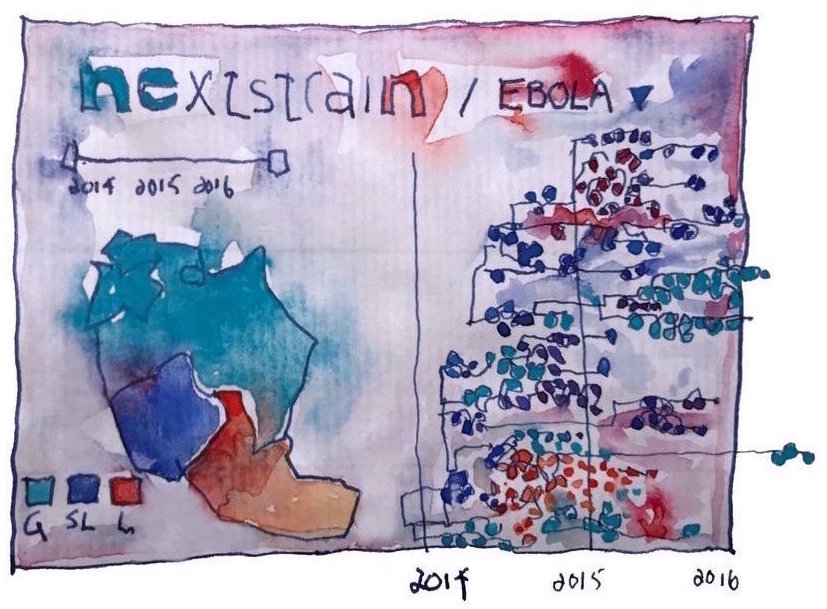 nextstrain / EBOLA
2014 2015 2016
G SL L
2014 2015 2016